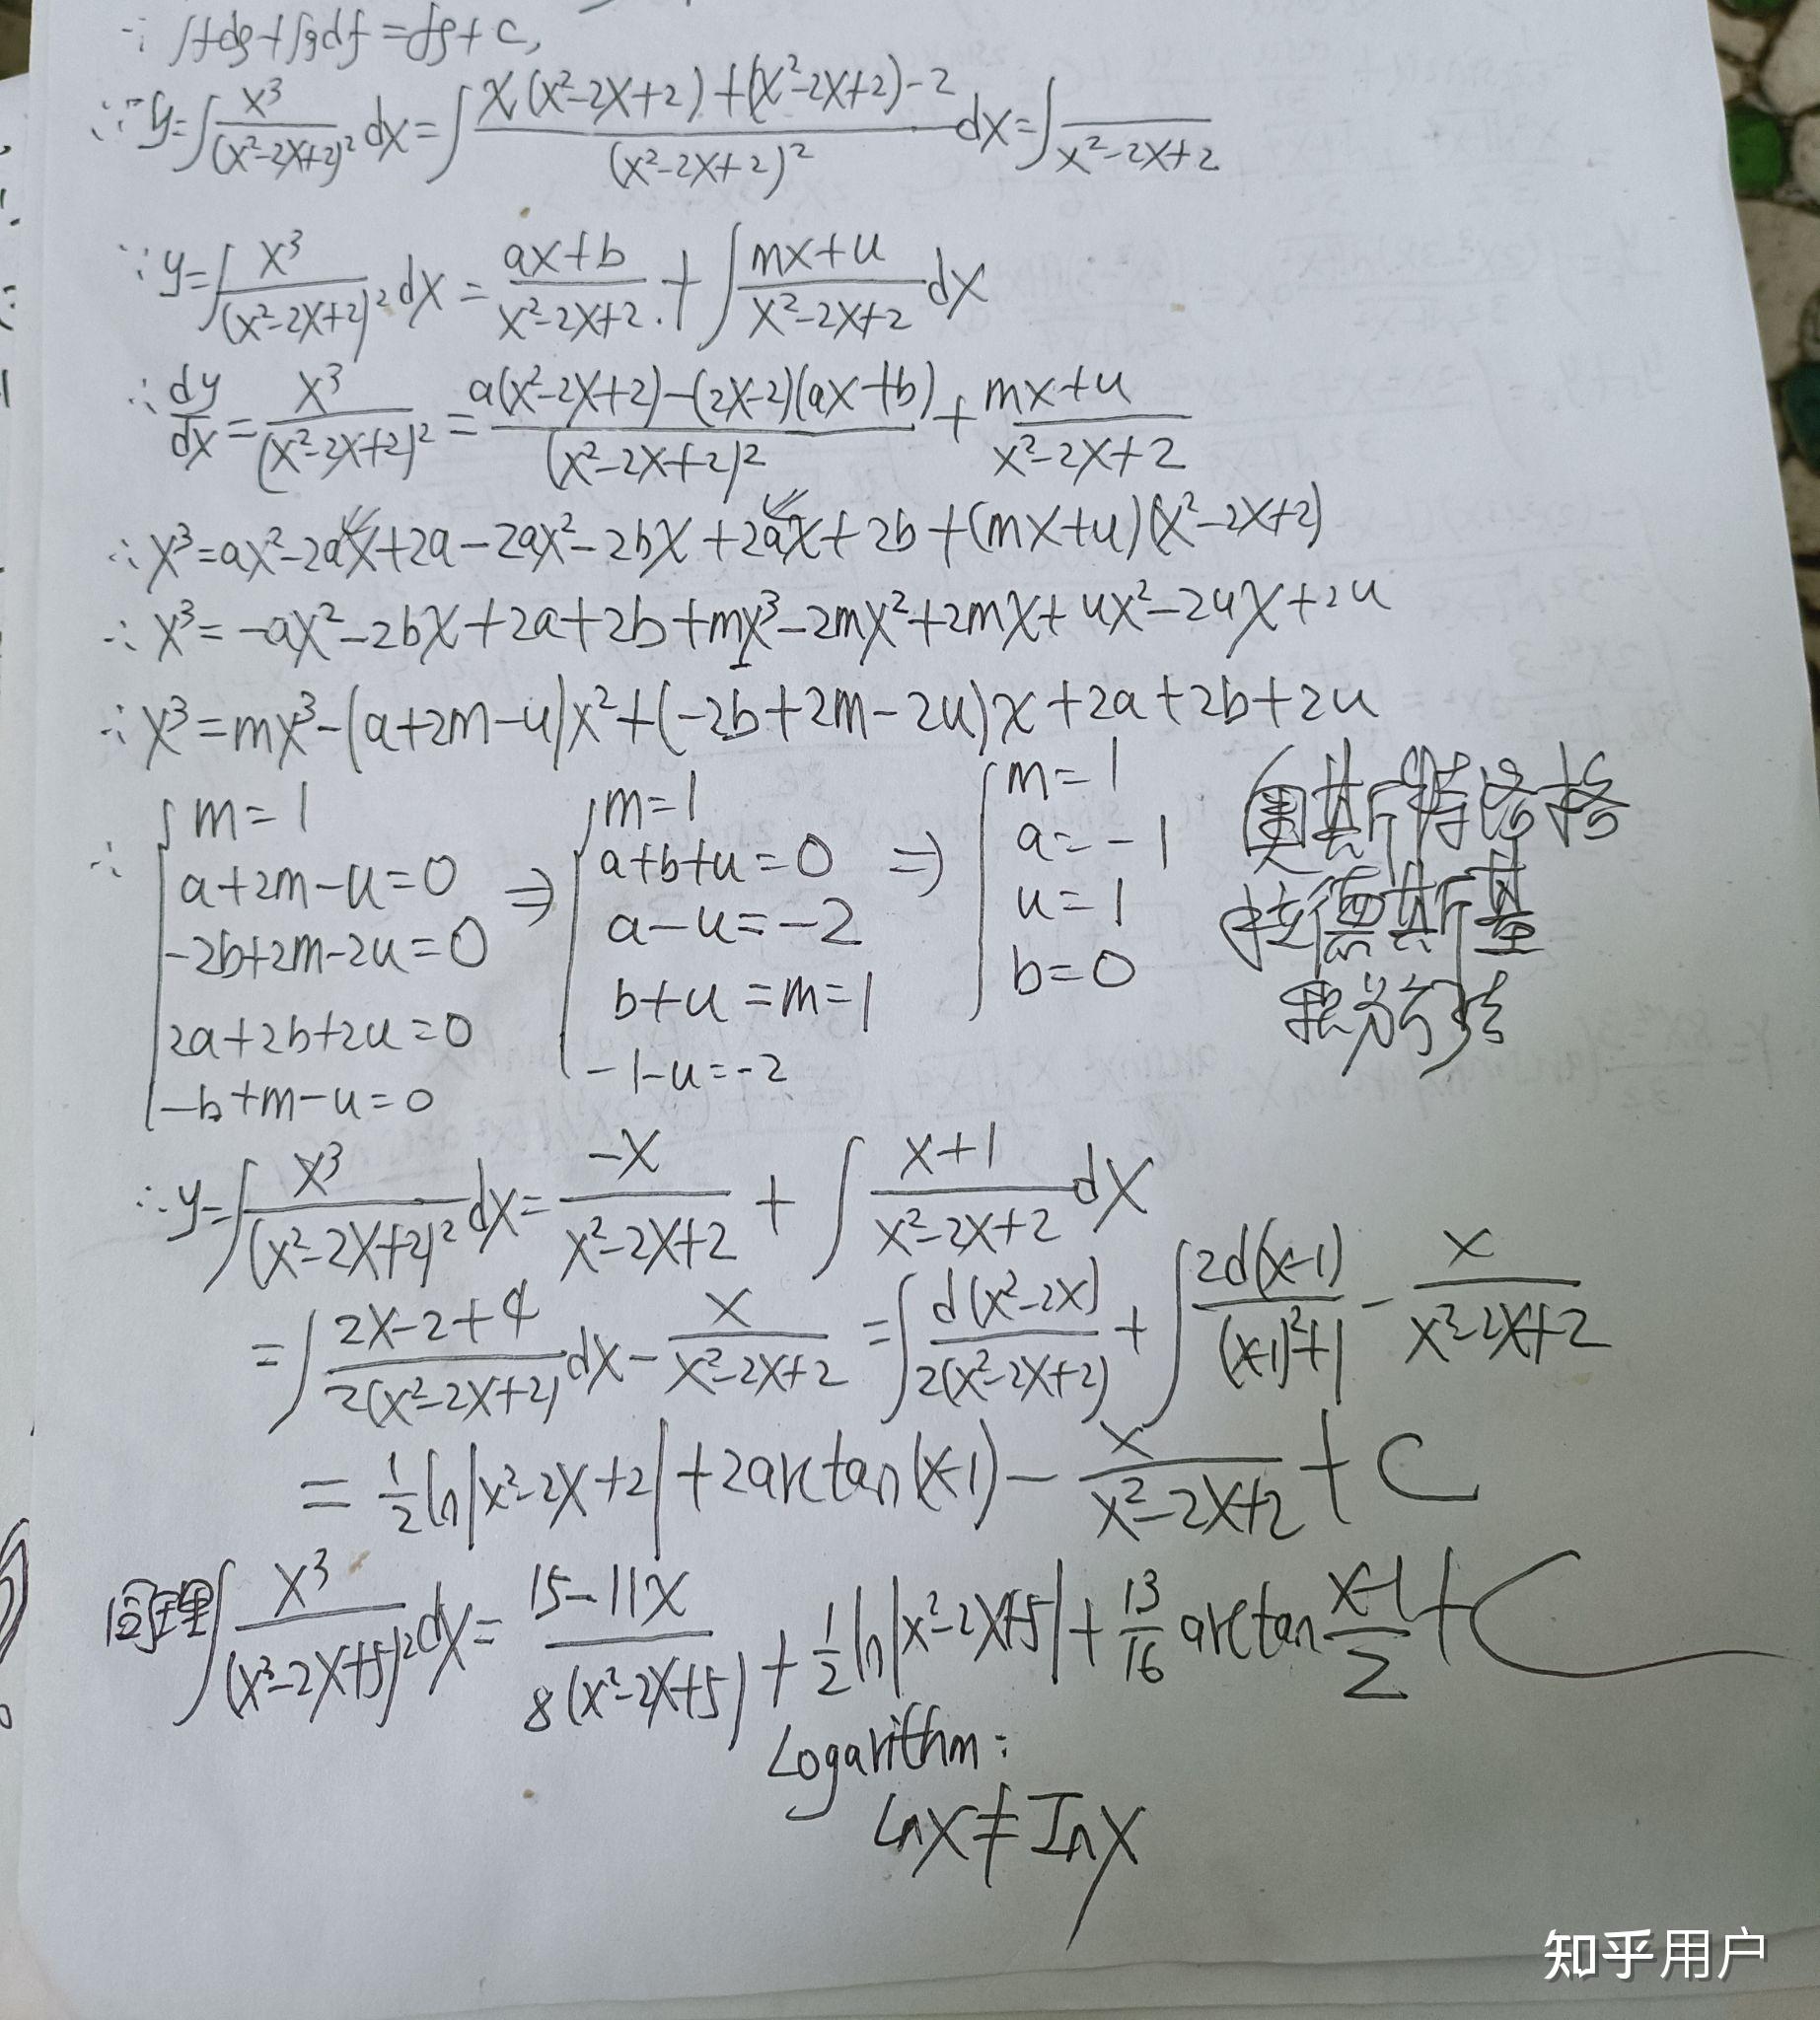 ∵ ∫fdg+∫gdf=fg+C,
∵ y=∫x³/(x²-2x+2)² dx=∫(x(x²-2x+2)+(x²-2x+2)-2)/(x²-2x+2)² dx=∫ /(x²-2x+2)
∵ y=∫x³/(x²-2x+2)² dx=(ax+b)/(x²-2x+2)+∫(mx+u)/(x²-2x+2) dx
∴ dy/dx=x³/(x²-2x+2)²=(a(x²-2x+2)-(2x-2)(ax+b))/(x²-2x+2)²+(mx+u)/(x²-2x+2)
∴ x³=ax²-2ax+2a-2ax²-2bx+2ax+2b+(mx+u)(x²-2x+2)
∴ x³=-ax²-2bx+2a+2b+mx³-2mx²+2mx+ux²-2ux+2u
∴ x³=mx³-(a+2m-u)x²+(-2b+2m-2u)x+2a+2b+2u
∴ { m=1
a+2m-u=0
-2b+2m-2u=0
2a+2b+2u=0
-b+m-u=0
⇒ { m=1
a+b+u=0
a-u=-2
b+u=m=1
-1-u=-2
⇒ { m=1
a=-1
u=1
b=0
(奥斯特洛格
拉德斯基
积分方法
∴ y=∫x³/(x²-2x+2)² dx=-x/(x²-2x+2)+∫(x+1)/(x²-2x+2) dx
=∫(2x-2+4)/(2(x²-2x+2)) dx-x/(x²-2x+2)=∫d(x²-2x)/(2(x²-2x+2))+∫2d(x-1)/((x-1)²+1)-x/(x²-2x+2)
=½ln|x²-2x+2|+2arctan(x-1)-x/(x²-2x+2)+C
同理∫x³/(x²-2x+5)² dx=(15-11x)/(8(x²-2x+5))+½ln|x²-2x+5|+13/16 arctan (x-1)/2+C
Logarithm:
Lnx≠Inx
知乎用户